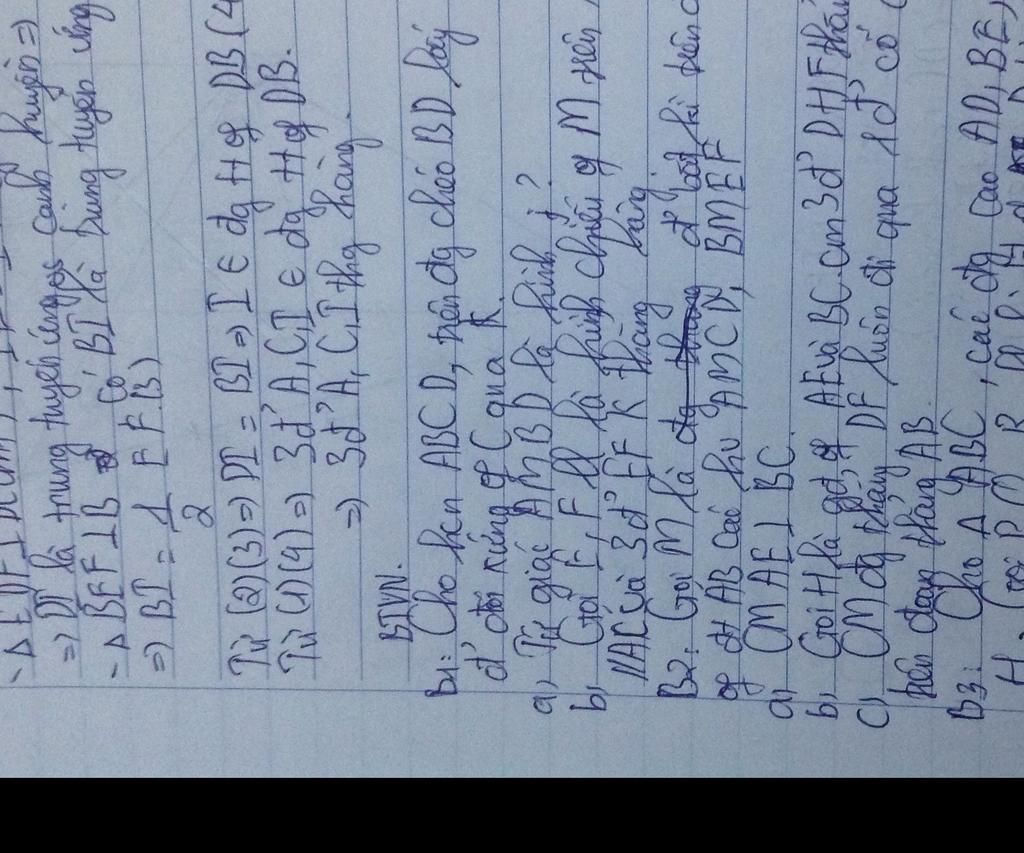 - Δ EDF ⊥ D
=> DI là trung tuyến ứng cạnh huyền =>
- Δ BEF ⊥ B có BI là trung tuyến ứng
=> BI = 1/2 EF (3)
Từ (2)(3) => DI = BI => I ∈ đg tt of DB (4
Từ (1)(4) => 3đ' A, C, I ∈ đg tt of DB.
=> 3đ' A, C, I thg hàng.
BTVN.
B1: Cho hcn ABCD, trên đg chéo BD lấy
đ' đối xứng of C qua K
a, Tứ giác AMBD là hình j?
b, Gọi E, F là hình chiếu of M trên
//AC và 3đ' E F K thẳng hàng.
B2: Gọi M là đ' bất kì trên
of AB các hv AMCD, BMEF
a, CM AE ⊥ BC.
b, Gọi H là gđ of AE và BC cm 3đ' DHF thẳ
c) CM đg thẳng DF luôn đi qua 1đ' cố
trên đoạn thẳng AB
B3: Cho Δ ABC, các đg cao AD, BE,
H.